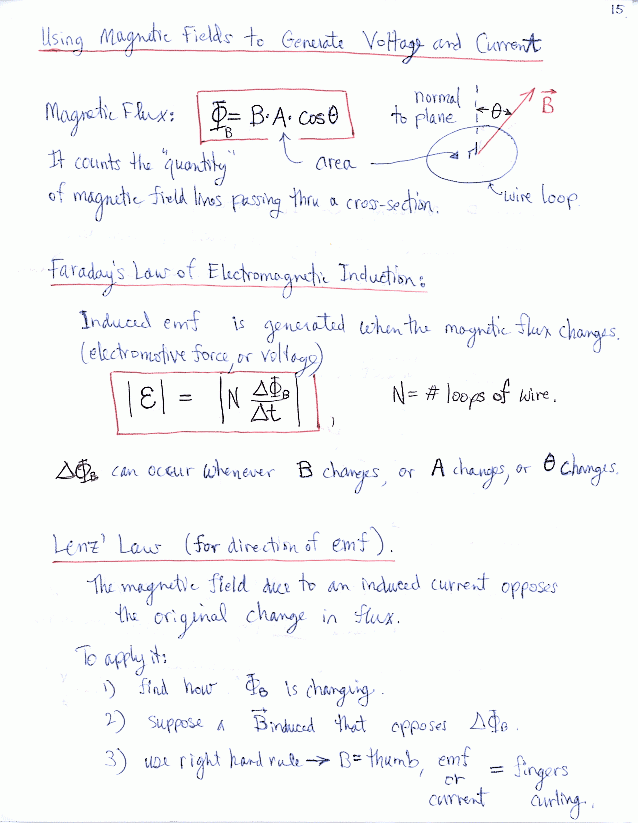 15
Using Magnetic Fields to Generate Voltage and Current
Magnetic Flux: Φ_B = B·A·cosθ
normal to plane
θ
B⃗
It counts the "quantity"
area
r
of magnetic field lines passing thru a cross-section.
wire loop
Faraday's Law of Electromagnetic Induction:
Induced emf is generated when the magnetic flux changes.
(electromotive force, or voltage)
|ℰ| = |N ΔΦ_B/Δt|, N = # loops of wire.
ΔΦ_B can occur whenever B changes, or A changes, or θ changes.
Lenz' Law (for direction of emf).
The magnetic field due to an induced current opposes
the original change in flux.
To apply it:
1) find how Φ_B is changing.
2) suppose a B⃗induced that opposes ΔΦ_B.
3) use right hand rule → B = thumb, emf or current = fingers curling.